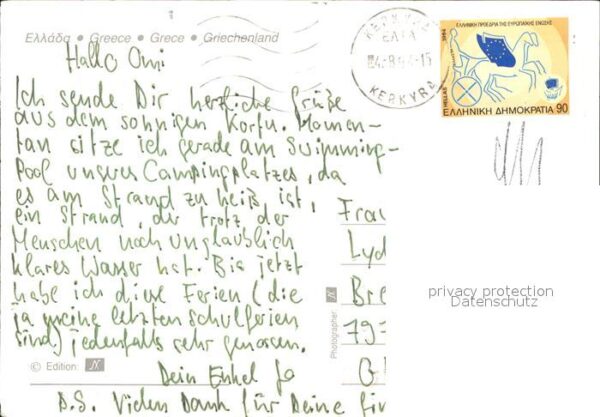 Ελλάδα • Greece • Grece • Griechenland
Hallo Omi
Ich sende Dir herzliche Grüße
aus dem sonnigen Korfu. Momen-
tan sitze ich gerade am Swimming-
Pool unseres Campingplatzes, da
es am Strand zu heiß ist,
ein Strand, der trotz der
Menschen noch unglaublich
klares Wasser hat. Bis jetzt
habe ich diese Ferien (die
ja meine letzten Schulferien
sind) jedenfalls sehr genossen.
Dein Enkel Jo
P.S. Vielen Dank für Deine
© Edition:
Photographer:
ΚΕΡΚΥΡΑ
KERKYRA
ΕΛΛΗΝΙΚΗ ΠΡΟΕΔΡΙΑ ΤΗΣ ΕΥΡΩΠΑΪΚΗΣ ΕΝΩΣΗΣ
1994
HELLAS
ΕΛΛΗΝΙΚΗ ΔΗΜΟΚΡΑΤΙΑ 90
Frau
Lyd
Bre
79
G
privacy protection
Datenschutz